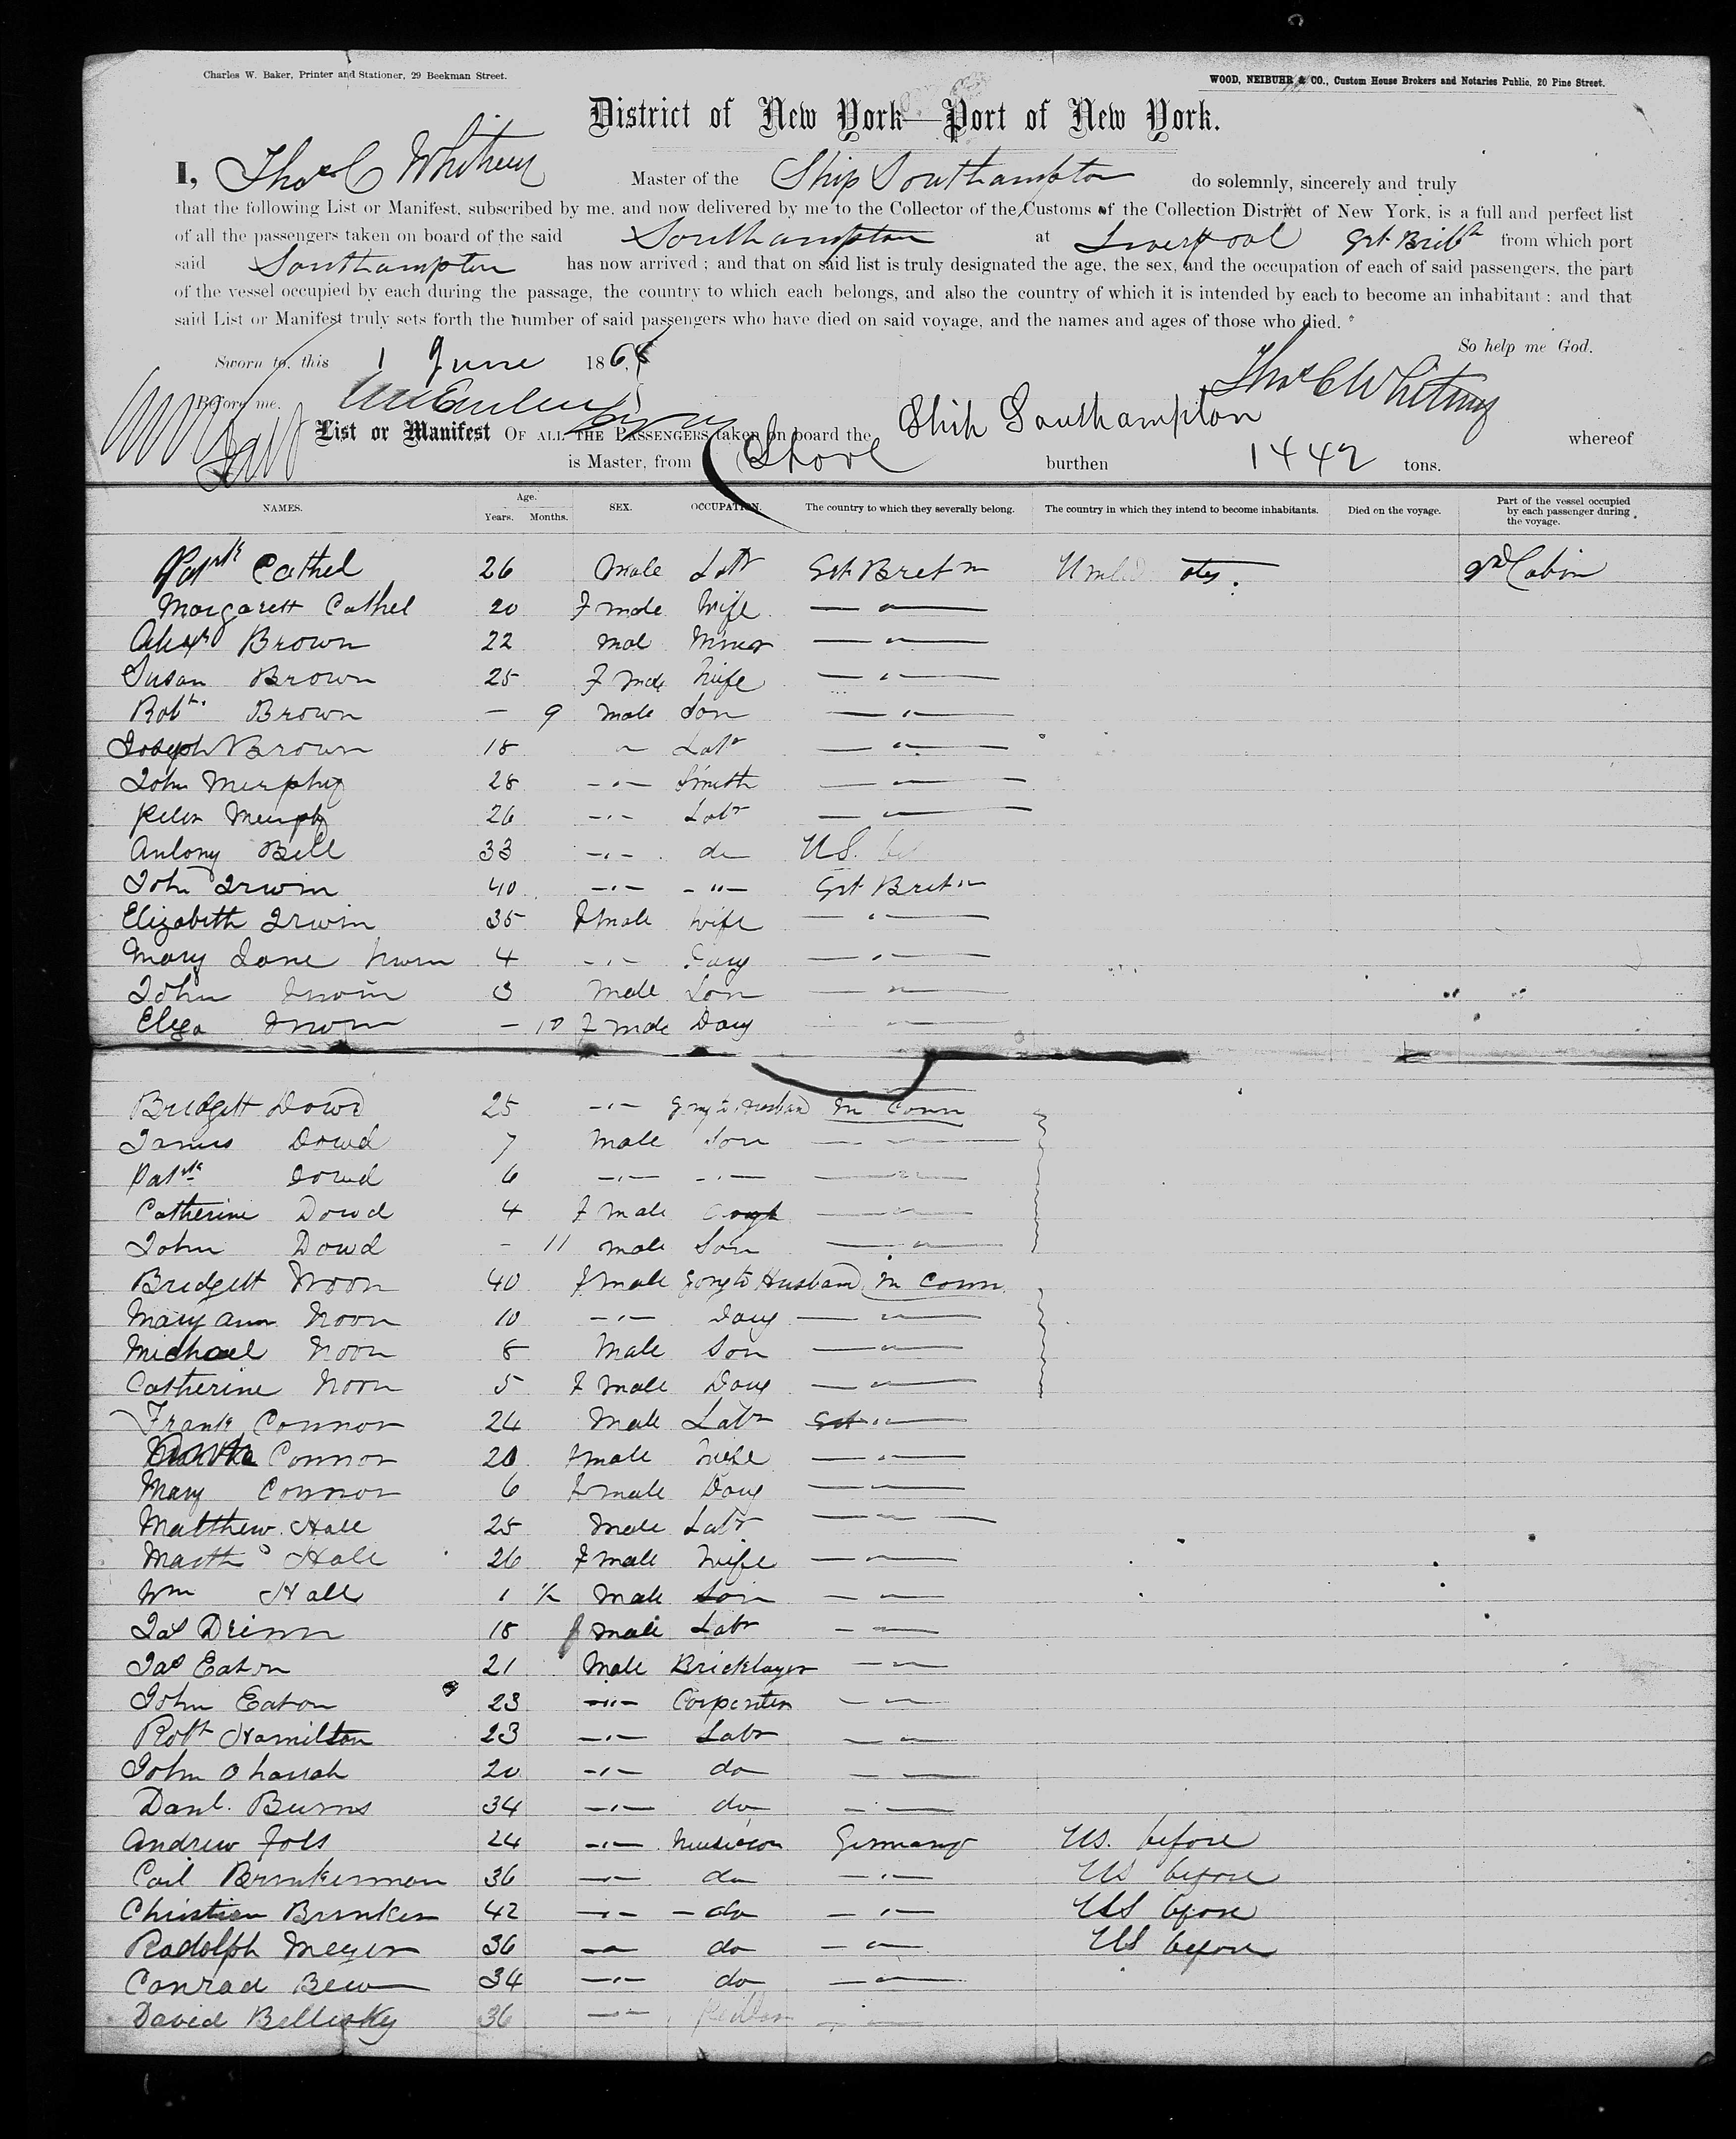 Charles W. Baker, Printer and Stationer, 29 Beekman Street.
WOOD, NEIBUHR & CO., Custom House Brokers and Notaries Public, 20 Pine Street.
District of New York—Port of New York.
I, Thos C Whitney Master of the Ship Southampton do solemnly, sincerely and truly
that the following List or Manifest, subscribed by me, and now delivered by me to the Collector of the Customs of the Collection District of New York, is a full and perfect list
of all the passengers taken on board of the said Southampton at Liverpool Grt. Britn from which port
said Southampton has now arrived ; and that on said list is truly designated the age, the sex, and the occupation of each of said passengers, the part
of the vessel occupied by each during the passage, the country to which each belongs, and also the country of which it is intended by each to become an inhabitant : and that
said List or Manifest truly sets forth the number of said passengers who have died on said voyage, and the names and ages of those who died.
So help me God.
Sworn to, this 1 June 186
Thos C Whitney
Before me,
List or Manifest OF ALL THE PASSENGERS taken on board the Ship Southampton whereof
is Master, from Lpool burthen 1442 tons.
NAMES. Age. Years. Months. SEX. OCCUPATION. The country to which they severally belong. The country in which they intend to become inhabitants. Died on the voyage. Part of the vessel occupied by each passenger during the voyage.
Patrk Cathel 26 Male Labr Grt Bretn United Cabin
Margarett Cathel 20 Fmale Wife — " —
Alexr Brown 22 Mal Miner — " —
Susan Brown 25 Fmale Wife — " —
Robt. Brown — 9 Male Son — " —
Joseph Brown 18 " Labr — " —
John Murphy 28 - " - Smith — " —
Peter Murphy 26 - " - Labr — " —
Antony Bell 33 - " - do U.S.
John Irwin 40 - " - - " - Grt Bretn
Elizabeth Irwin 35 Fmale Wife — " —
Mary Jane Irwin 4 - " - Daug — " —
John Irwin 3 Male Son — " —
Eliza Irwin — 10 Fmale Daug — " —
Bridgett Dowd 25 - " - going to Husband in Conn
James Dowd 7 Male Son — " —
Patrk Dowd 6 - " - - " - — " —
Catherine Dowd 4 Fmale — " —
John Dowd - 11 male Son — " —
Bridgett Noon 40 Fmale going to Husband in Conn
Mary Ann Noon 10 - " - Daug — " —
Michael Noon 8 Male Son — " —
Catherine Noon 5 Fmale Daug — " —
Frank Connor 24 Male Labr — " —
Connor 20 Fmale Wife — " —
Mary Connor 6 Fmale Daug — " —
Matthew Hall 25 Male Labr — " —
Martha Hall 26 Fmale Wife — " —
Wm Hall 1 ½ Male Son — " —
Jas 18 male Labr — " —
Jas Eaton 21 Male Bricklayer — " —
John Eaton 23 - " - Carpenter — " —
Robt Hamilton 23 - " - Labr — " —
John Oharrah 20 - " - do — " —
Danl. Burns 34 - " - do — " —
Andrew Fols 24 - " - Musician Germany US. before
Carl Brinkerman 36 - " - do - " - US before
Christian Brinker 42 - " - do - " - US before
Radolph Meyer 36 - " - do - " - US before
Conrad Bew 34 - " - do - " -
David Bellisky 36 - " - - " -